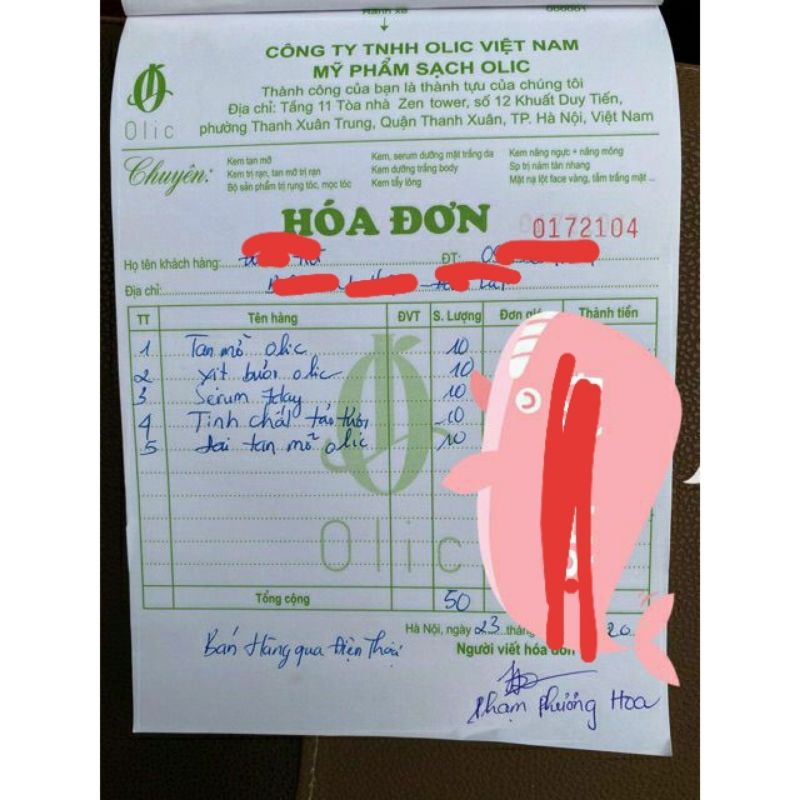 000001
CÔNG TY TNHH OLIC VIỆT NAM
MỸ PHẨM SẠCH OLIC
Thành công của bạn là thành tựu của chúng tôi
Địa chỉ: Tầng 11 Tòa nhà Zen tower, số 12 Khuất Duy Tiến,
phường Thanh Xuân Trung, Quận Thanh Xuân, TP. Hà Nội, Việt Nam
Olic
Chuyên:
Kem tan mỡ
Kem trị rạn, tan mỡ trị rạn
Bộ sản phẩm trị rụng tóc, mọc tóc
Kem, serum dưỡng mặt trắng da
Kem dưỡng trắng body
Kem tẩy lông
Kem nâng ngực + nâng mông
Sp trị nám tàn nhang
Mặt nạ lột face vàng, tắm trắng mặt ...
HÓA ĐƠN
0172104
Họ tên khách hàng: ĐT:
Địa chỉ:
TT Tên hàng ĐVT S. Lượng Đơn giá Thành tiền
1 Tan mỡ olic 10
2 xịt bưởi olic 10
3 Serum 7day 10
4 Tinh chất tảo tươi 10
5 đai tan mỡ olic 10
Olic
Tổng cộng 50
Hà Nội, ngày 23 tháng 20
Bán Hàng qua Điện Thoại
Người viết hóa đơn
Phạm Phương Hoa